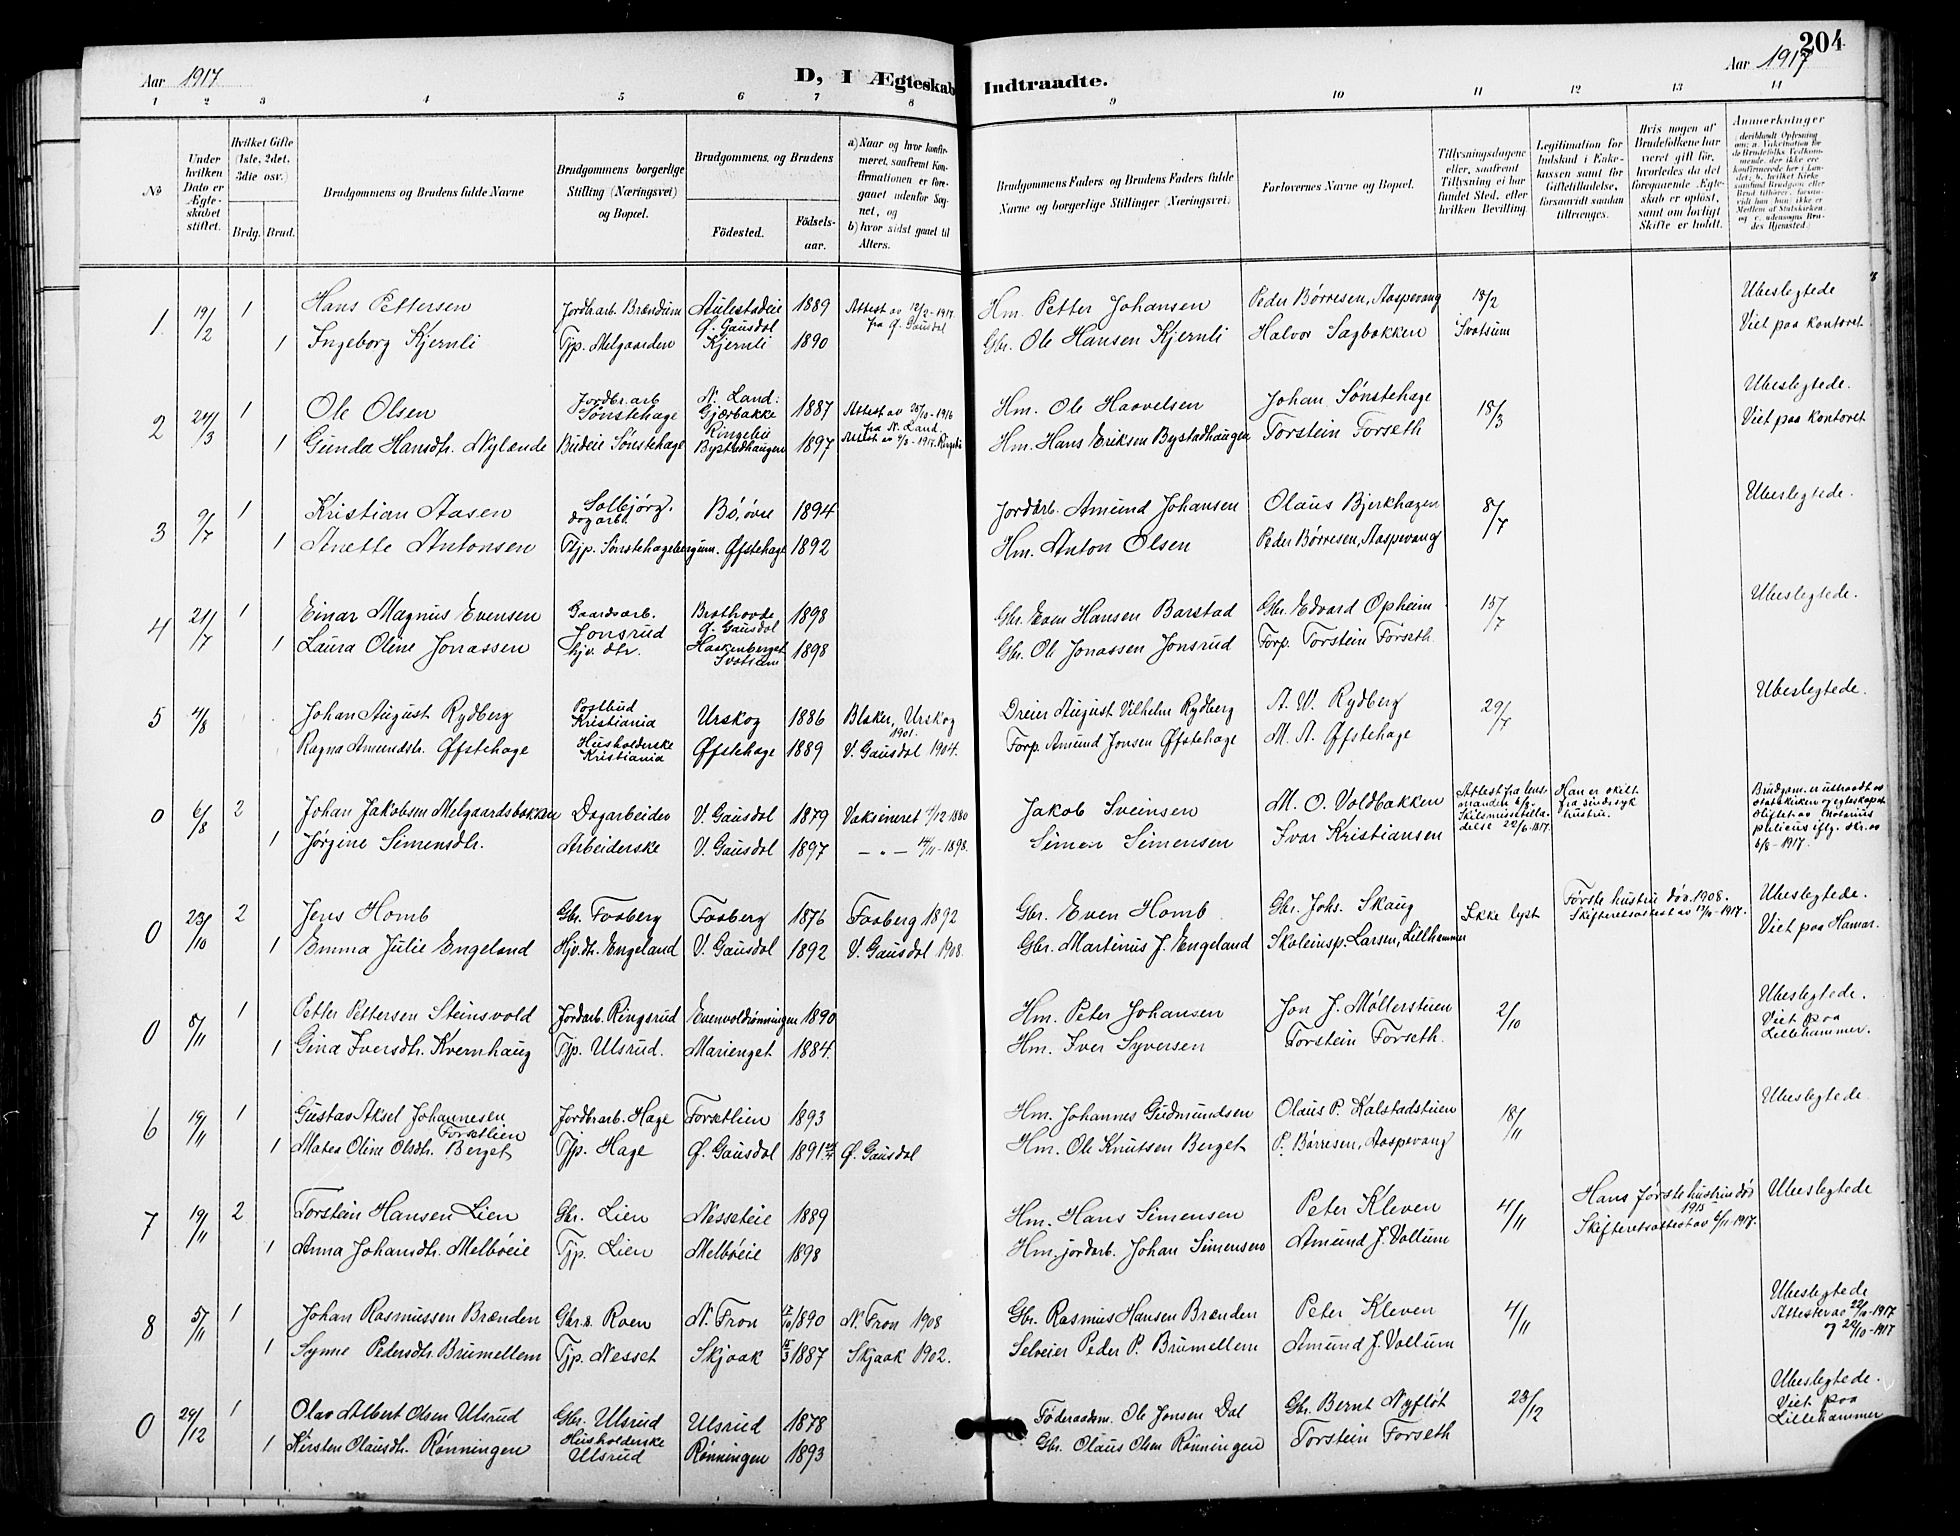 204
Aar 1917
D, I Ægteskab Indtraadte.
Aar 1917
1 2 3 4 5 6 7 8 9 10 11 12 13 14
No
Under hvilken Dato er Ægteskabet stiftet.
Hvilket Gifte (1ste, 2det, 3die osv.)
Brdg. Brud.
Brudgommens og Brudens fulde Navne
Brudgommens borgerlige Stilling (Næringsvei) og Bopæl.
Brudgommens og Brudens
Födested. Födselsaar.
a) Naar og hvor konfirmeret, saafremt Konfirmationen er foregaaet udenfor Sognet, og
b) hvor sidst gaaet til Alters.
Brudgommens Faders og Brudens Faders fulde Navne og borgerlige Stillinger (Næringsvei).
Forlovernes Navne og Bopæl.
Tillysningsdagene eller, saafremt Tillysning ei har fundet Sted, efter hvilken Bevilling.
Legitimation for Indskud i Enkekassen samt for Giftetilladelse, forsaavidt saadan tiltrænges.
Hvis nogen af Brudefolkene har været gift för, hvorledes da det foregaaende Ægteskab er oplöst, samt om lovligt Skifte er holdt.
Anmerkninger
1 19/2 1 Hans Pettersen Jordbr.arb. Brændum Aulestadeie Ø. Gausdal 1889 Attest av 12/2-1917 fra Ø. Gausdal Hm. Petter Johansen Peder Børresen, Aaspevang 18/2 Ubeslegtede
1 Ingeborg Kjernli Tjp. Melgaarden Kjernli 1890 Gbr. Ole Hansen Kjernli Halvor Sagbakken Svatsum Viet paa kontoret
2 24/3 1 Ole Olsen Jordbr.arb Sønstehage N. Land: Gjærbakke 1887 Attest av 25/10-1916 fra N. Land. Hm. Ole Haavelsen Johan Sønstehage 18/3 Ubeslegtede.
1 Gunda Hansdtr. Nylænde Budeie Sønstehage Ringebu Bystadhaugen 1897 Hm. Hans Eriksen Bystadhaugen Torstein Forseth Viet paa kontoret
3 9/7 1 Kristian Aasen Solbjørg. dagarb. Bø, øvre 1894 Jordarb. Amund Johansen Olaus Bjerkhagen 8/7 Ubeslegtede.
1 Anette Antonsen Tjp. Sønstehagebergum. Øfstehage 1892 Hm. Anton Olsen Peder Børresen, Aaspevang
4 21/7 1 Einar Magnus Evensen Gaardsarb. Jonsrud Bratthovde Ø. Gausdal 1898 Gbr. Even Hansen Barstad Gbr. Edvard Opheim 15/7 Ubeslegtede.
1 Laura Oline Jonassen hjv. dtr. Haakenberget Svatsum 1898 Gbr. Ole Jonassen Jonsrud Forp. Torstein Forseth
5 4/8 Johan August Rydberg Postbud Kristiania Urskog 1886 Blaker, Urskog 1901. Dreier August Vilhelm Rydberg A. W. Rydberg 29/7 Ubeslegtede.
Ragna Amundsdtr. Øfstehage Husholderske Kristiania Øfstehage 1889 V. Gausdal 1904. Forp. Amund Jonsen Øfstehage M. A. Øfstehage
0 6/8 2 Johan Jakobsen Melgaardsbakken Dagarbeider V. Gausdal 1879 Vaksineret 4/12-1880 Jakob Sveinsen M. O. Voldbakken Attest fra lensmanden 6/8. Skilsmissetilladelse 22/6-1917. Han er skilt fra sindssyk hustru. Brudgom. er utraadt av statskirken og egteskapet stiftet av Notarius publicus iflg. skr. av 6/8-1917.
1 Jørgine Simensdtr. Arbeiderske V. Gausdal 1897 — " — 14/11-1898. Simen Simensen Ivar Kristiansen
0 23/10 2 Jens Homb Gbr. Faaberg Faaberg 1876 Faaberg 1892 Gbr. Even Homb Gbr. Johs. Skaug Ikke lyst Første hustru død 1908. Skifteretsattest av 12/10-1917. Ubeslegtede.
1 Emma Julie Engeland Hjv.dtr. Engeland V. Gausdal 1892 V. Gausdal 1908. Gbr. Martinus J. Engeland Skoleinsp. Larsen, Lillehammer Viet paa Hamar.
0 5/11 1 Petter Pettersen Steinsvold Jordarb. Ringsrud Evenvoldrønningen 1890 Hm. Peter Johansen Jon J. Møllerstuen 2/10 Ubeslegtede. Viet paa Lillehammer.
1 Gina Iversdtr. Kvernhaug Tjp. Ulsrud. Marienget 1884. Hm. Iver Syversen Torstein Forseth.
6 19/11 1 Gustav Aksel Johannesen Forsetlien Jordbr.arb. Hage Forsetlien 1893 Hm. Johannes Gudmundsen Olaus P. Kalstadstuen 18/11 Ubeslegtede
1 Mathea Oline Olsdtr. Berget Tjp. Hage Ø. Gausdal 1891 Ø. Gausdal Hm. Ole Knutsen Berget P. Børresen, Aaspevang
7 19/11 2 Torstein Hansen Lien Gbr. Lien Nesseteie 1889 Hm. Hans Simensen Peter Kleven 4/11 Hans første hustru død 1915 Skifteretsattest av 6/11-1917. Ubeslegtede
1 Anna Johansdtr. Melbøeie Tjp. Lien Melbøeie 1898 Hm. jordarb. Johan Simensen Amund J. Vollum
8 5/11 1 Johan Rasmussen Brænden Gbr.s. Roen N. Fron 1890 N. Fron 1908 Gbr. Rasmus Hansen Brænden Peter Kleven 4/11 Ubeslegtede Attester av 22/10-1917 og 22/10-1917
1 Synne Pedersdtr. Brumellem Tjp. Nesset Skjaak 1887 Skjaak 1902. Selveier Peder P. Brumellem Amund J. Vollum
0 29/12 1 Olav Albert Olsen Ulsrud Gbr. Ulsrud Ulsrud 1878 Føderaadsm. Ole Jonsen Dal Gbr. Bernt Nyfløt 23/12 Ubeslegtede. Viet paa Lillehammer
1 Kirsten Olausdtr. Rønningen Husholderske Ulsrud Rønningen 1893 Gbr. Olaus Olsen Rønningen Torstein Forseth